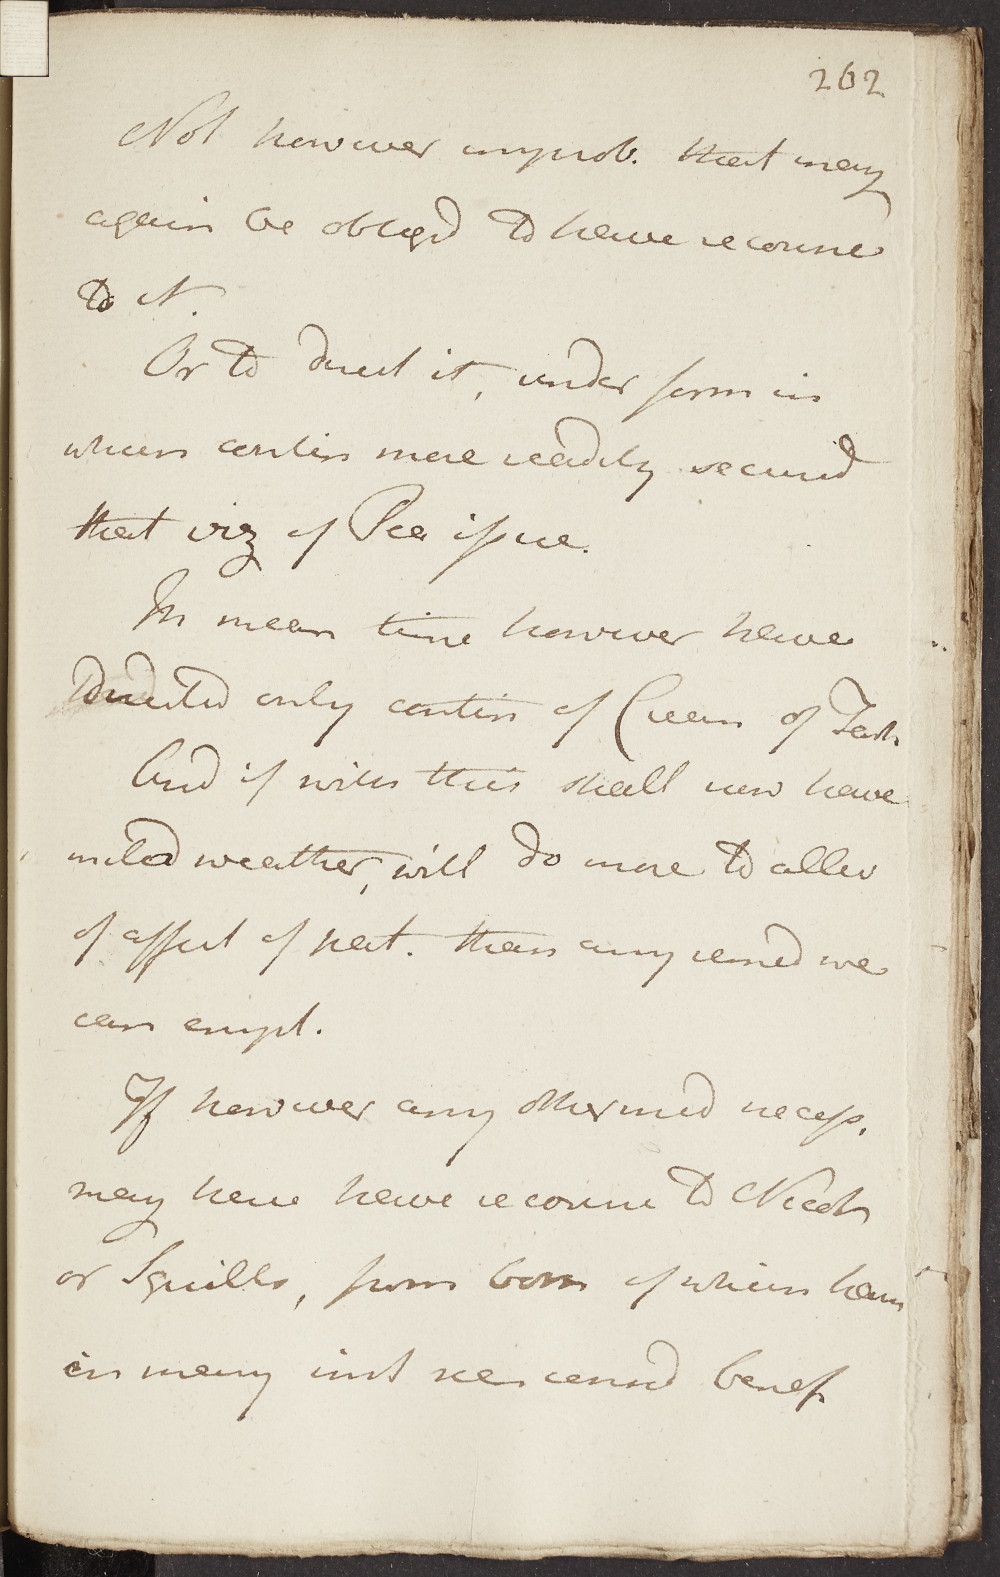 262
Not however improb. that may
again be obliged to have recourse
to it.
Or to direct it, under form in
which contin more readily secured
that viz of Pea issue.
In mean time however have
directed only contin of Cream of Tart.
And if with this shall now have
mild weather, will do more to allev
of affect of pat. than any remed we
can empl.
If however any other med necess.
may here have recourse to Nicot
or Squills, from both of which have
in many inst seen consid benef